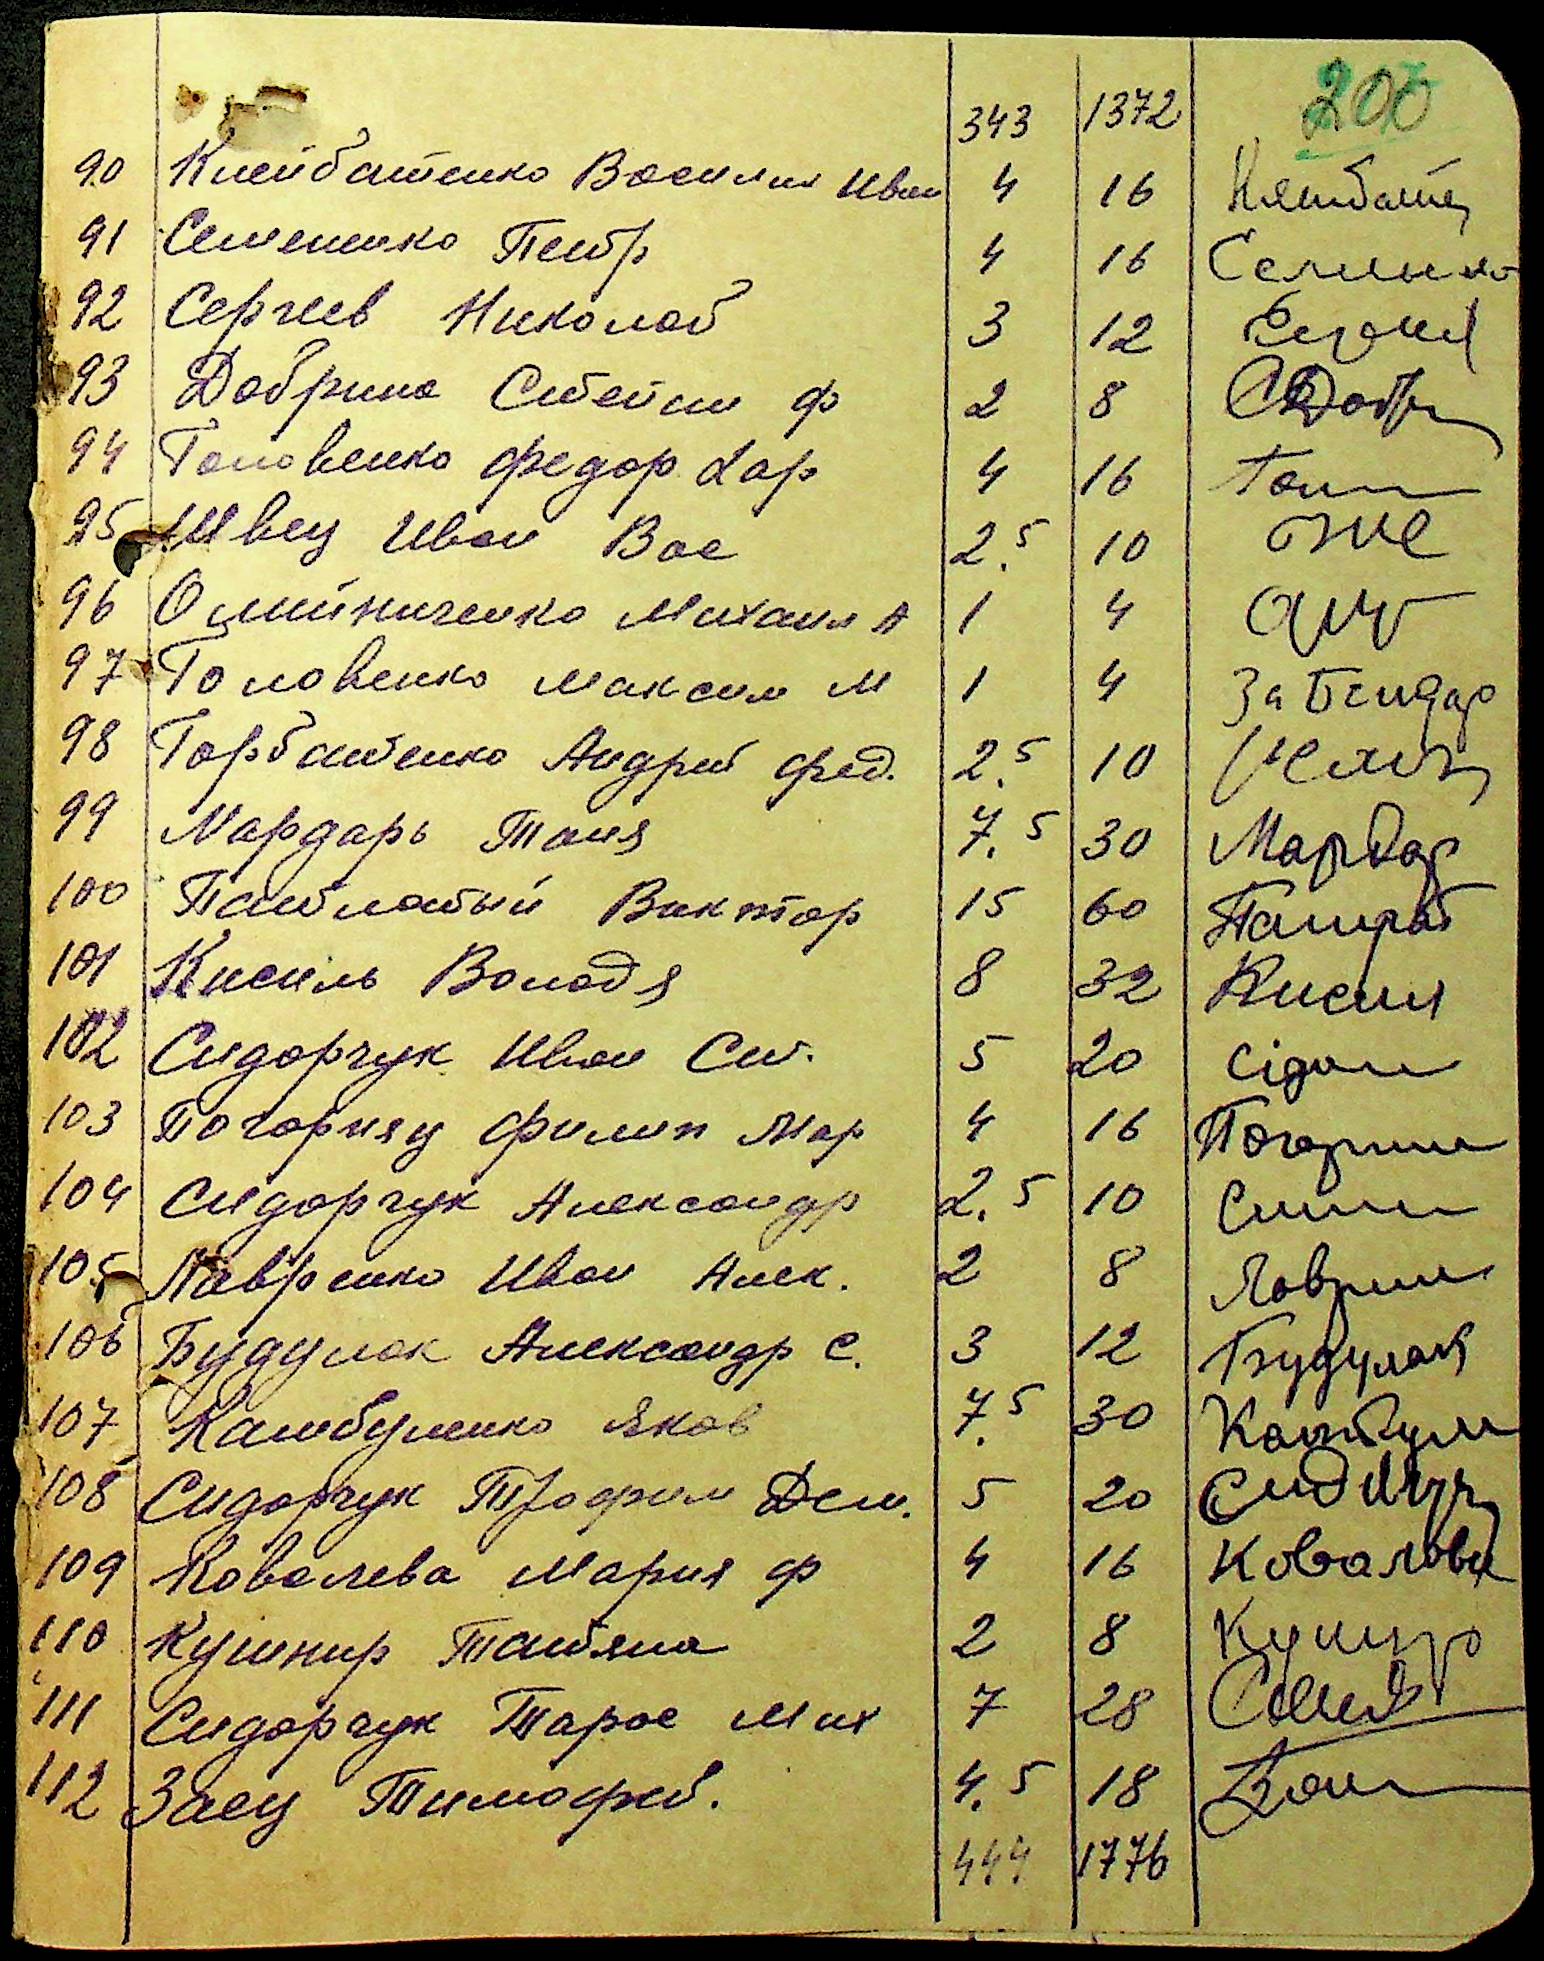 343 1372 200
90 Клейбатенко Василий Иван 4 16
91 Семененко Петр 4 16
92 Сергеев Николай 3 12
93 Добрина Стейан ф 2 8
94 Головенко Федор Хар 4 16
95 Швец Иван Вас 2.5 10
96 Олийниченко Михаил А 1 4
97 Головенко Максим М 1 4 За Бендар
98 Горбатенко Андрей Фед. 2.5 10
99 Мардарь Таня 7.5 30 Мардар
100 Патлатый Виктор 15 60
101 Кисиль Володя 8 32 Кисил
102 Сидорчук Иван См. 5 20 Сідо
103 Погорняц Филип Мар 4 16
104 Сидорчук Александр 2.5 10
105 Лавренко Иван Алек. 2 8
106 Будулак Александр С. 3 12 Будулак
107 Камбуленко Яков 7.5 30 Камбул
108 Сидорчук Трофим Дем. 5 20
109 Ковалева Мария Ф 4 16 Ковалова
110 Кушнир Татьяна 2 8 Кушнір
111 Сидорчук Тарас Мих 7 28
112 Заец Тимофей. 4.5 18
444 1776